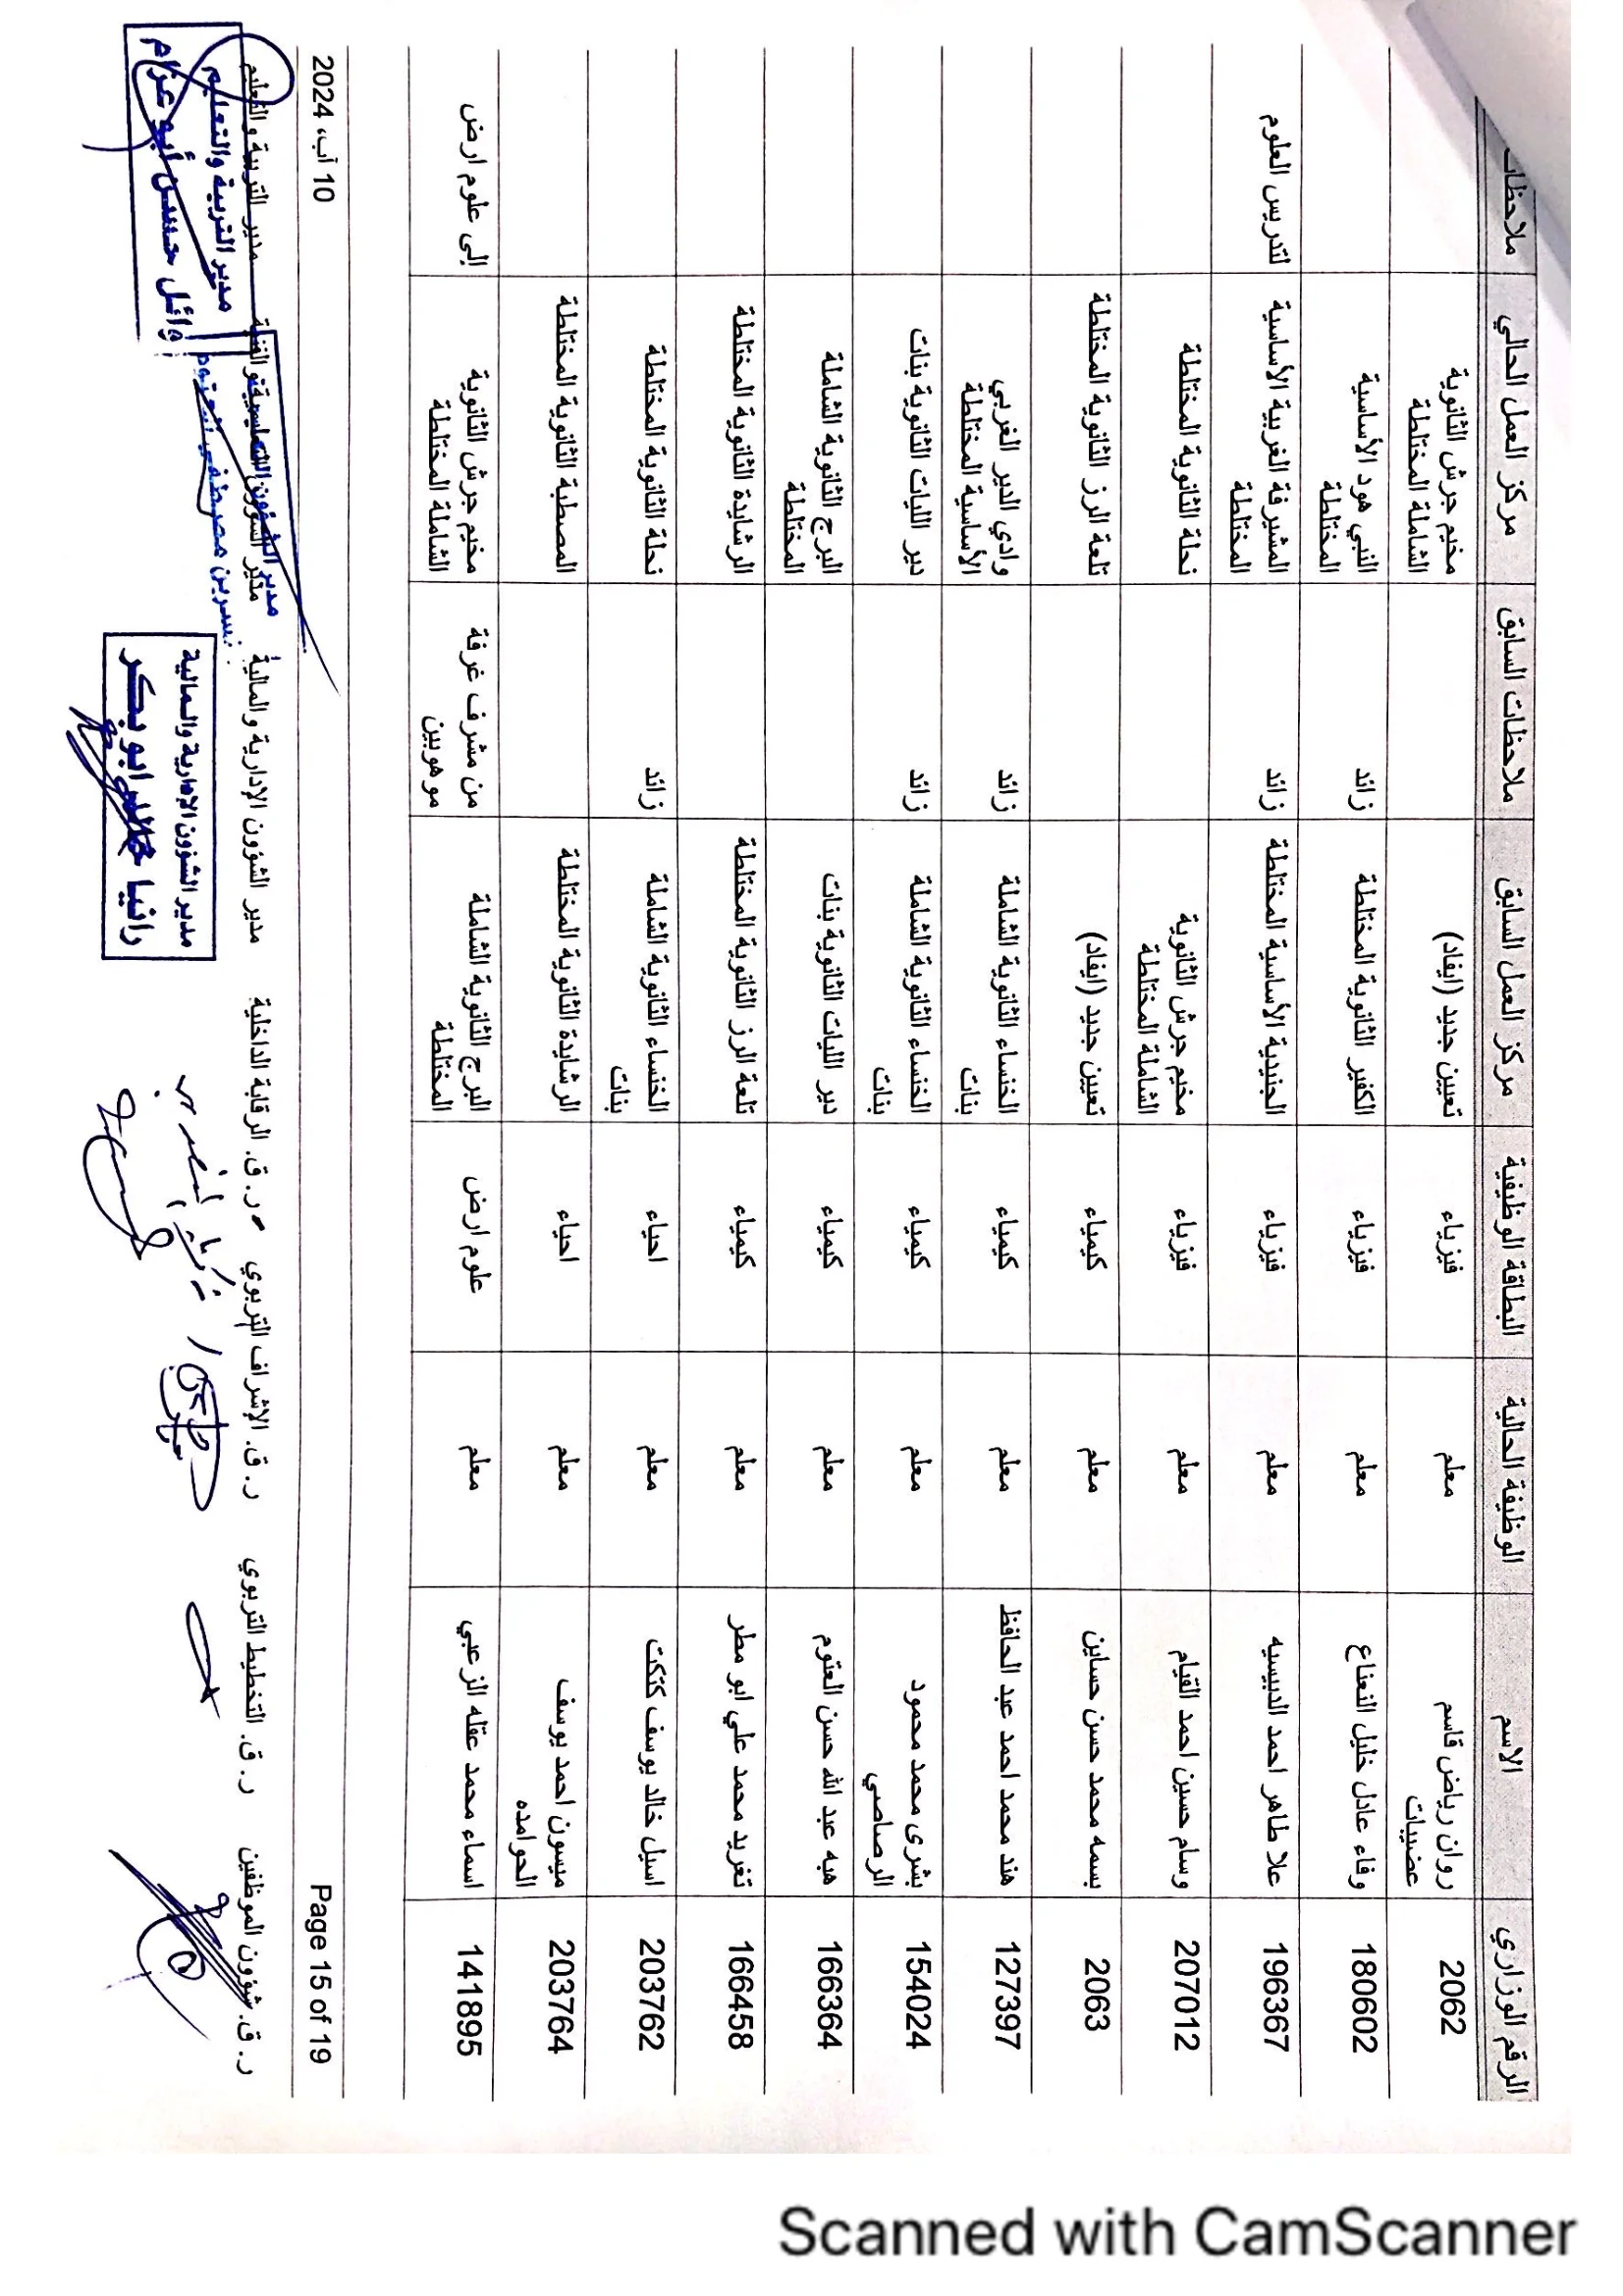 الرقم الوزاري الاسم الوظيفة الحالية البطاقة الوظيفية مركز العمل السابق ملاحظات السابق مركز العمل الحالي ملاحظات
2062 روان رياض قاسم عضيبات معلم فيزياء تعيين جديد (ايفاد) مخيم جرش الثانوية الشاملة المختلطة
180602 وفاء عادل خليل النعناع معلم فيزياء الكفير الثانوية المختلطة زائد النبي هود الأساسية المختلطة
196367 علا طاهر احمد الدبيسيه معلم فيزياء الجنيدية الأساسية المختلطة زائد المشيرفة الغربية الأساسية المختلطة لتدريس العلوم
207012 وسام حسين احمد القيام معلم فيزياء مخيم جرش الثانوية الشاملة المختلطة نحلة الثانوية المختلطة
2063 بسمه محمد حسن حساين معلم كيمياء تعيين جديد (ايفاد) تلعة الرز الثانوية المختلطة
127397 هند محمد احمد عبد الحافظ معلم كيمياء الخنساء الثانوية الشاملة بنات زائد وادي الدير الغربي الأساسية المختلطة
154024 بشرى محمد محمود الرصاصي معلم كيمياء الخنساء الثانوية الشاملة بنات زائد دير الليات الثانوية بنات
166364 هبه عبد الله حسن العتوم معلم كيمياء دير الليات الثانوية بنات البرج الثانوية الشاملة المختلطة
166458 تغريد محمد علي ابو مطر معلم كيمياء تلعة الرز الثانوية المختلطة الرشايدة الثانوية المختلطة
203762 اسيل خالد يوسف كتكت معلم احياء الخنساء الثانوية الشاملة بنات زائد نحلة الثانوية المختلطة
203764 ميسون احمد يوسف الحوامده معلم احياء الرشايدة الثانوية المختلطة المصطبة الثانوية المختلطة
141895 اسماء محمد عقله الزعبي معلم علوم ارض البرج الثانوية الشاملة المختلطة من مشرف غرفة موهوبين مخيم جرش الثانوية الشاملة المختلطة الى علوم ارض
Page 15 of 19 10 آب، 2024
ر. ق. شؤون الموظفين ر. ق. التخطيط التربوي ر. ق. الإشراف التربوي ر. ق. الرقابة الداخلية مدير الشؤون الإدارية والمالية مدير الشؤون التعليمية والفنية مدير التربية والتعليم
مدير الشؤون الإدارية والمالية
رانيا خالد ابو بكر
مدير الشؤون التعليمية والفنية
نسرين مصطفى
مدير التربية والتعليم
وائل حسن أبو عزام
Scanned with CamScanner